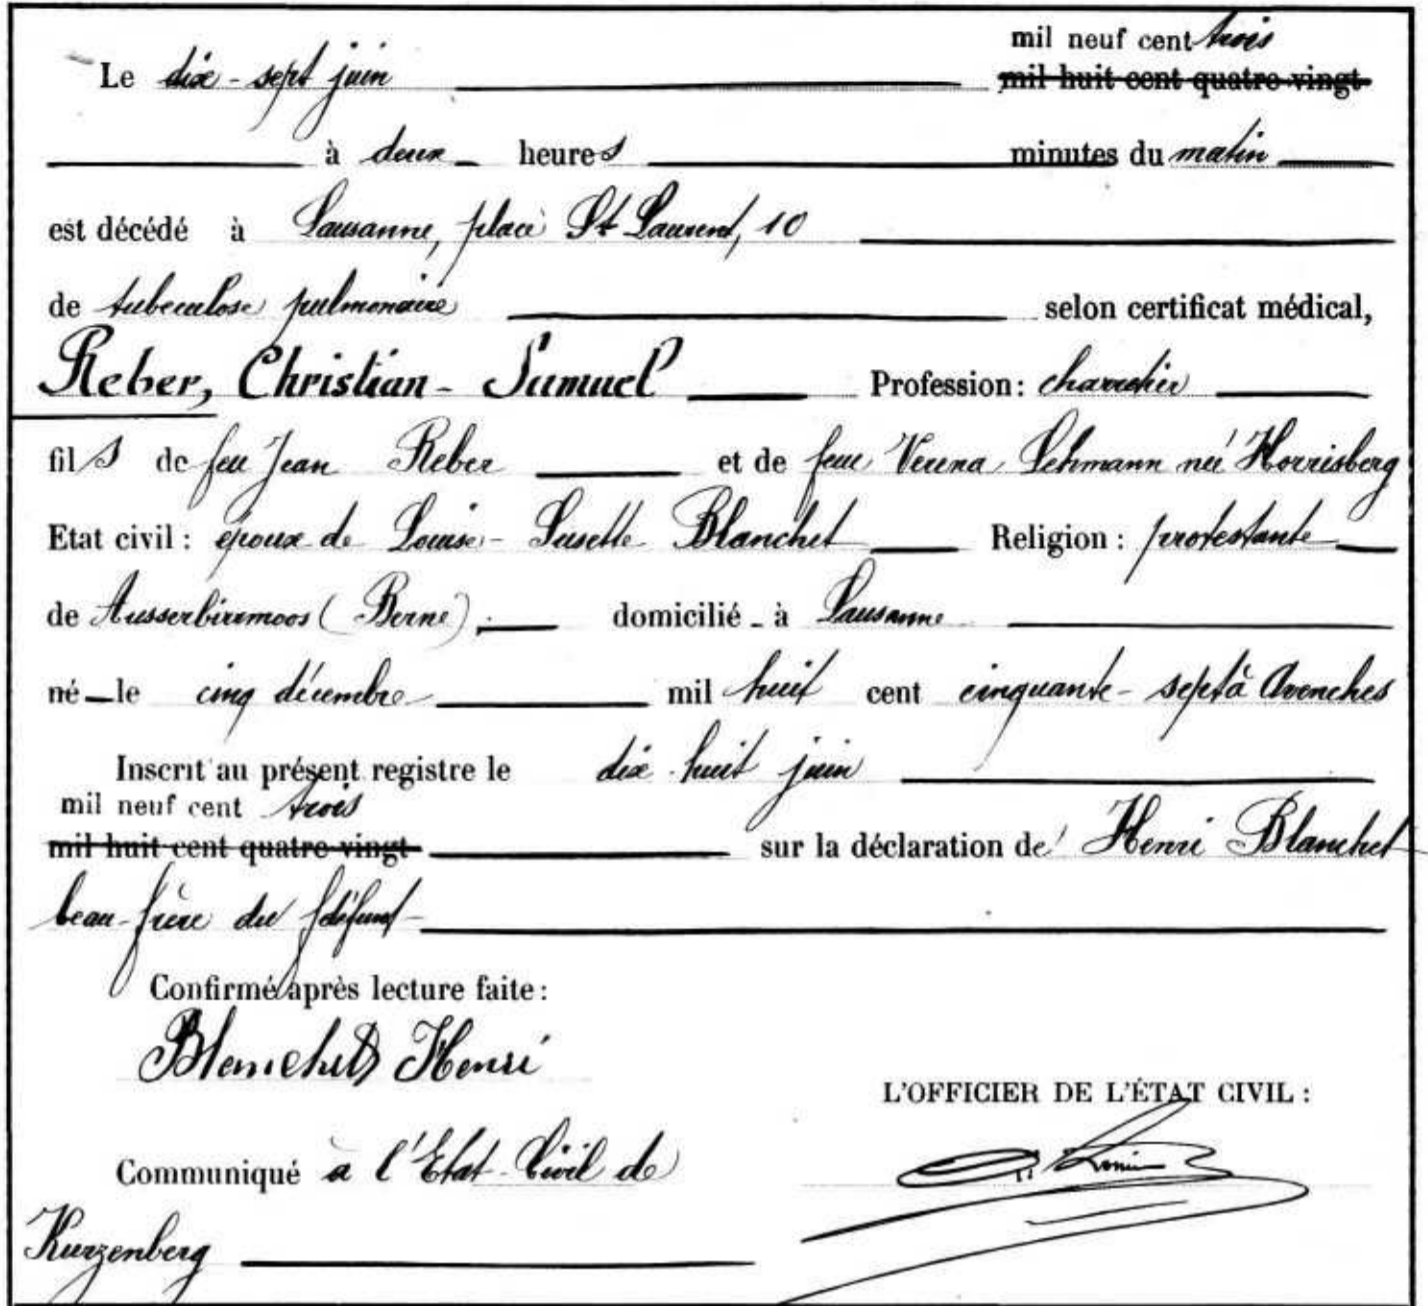 mil neuf cent trois
Le dix-sept juin mil huit cent quatre-vingt
à deux heures minutes du matin
est décédé à Lausanne, place St Laurent, 10
de tubeculose pulmonaire selon certificat médical,
Reber, Christian-Samuel Profession: charretier
fils de feu Jean Reber et de feue Verena Lehmann née Horrisberg
Etat civil : époux de Louise-Susette Blanchet Religion : protestante
de Ausserbirrmoos (Berne) domicilié à Lausanne
né le cinq décembre mil huit cent cinquante-sept à Avenches
Inscrit au présent registre le dix-huit juin
mil neuf cent trois
mil huit cent quatre-vingt sur la déclaration de Henri Blanchet
beau-frère du défunt
Confirmé après lecture faite :
Blanchet Henri
L'OFFICIER DE L'ÉTAT CIVIL :
Communiqué à l'Etat-Civil de
Kurzenberg